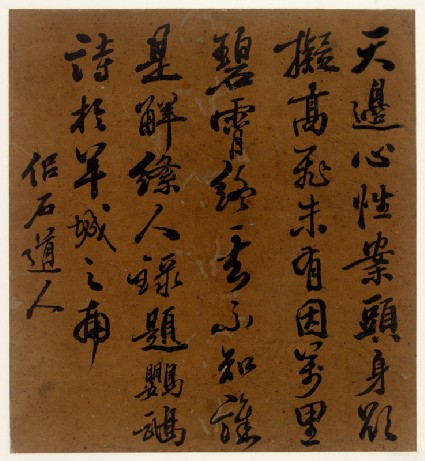 天邊心性案頭身欲
擬高飛未有因萬里
碧霄終一去不知誰
是解絛人錄題鸚鵡
詩於羊城之南
侶石道人